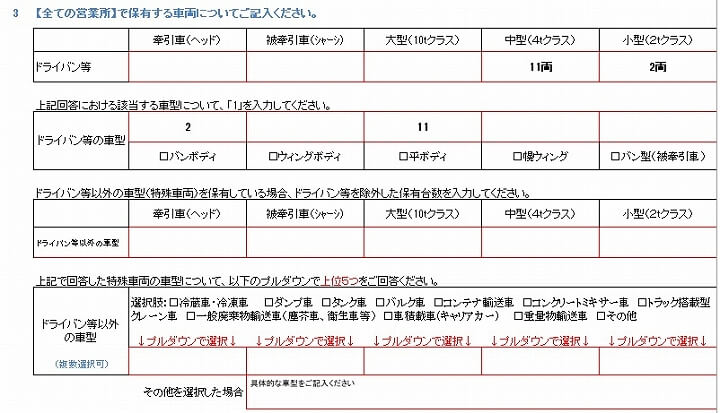 3 【全ての営業所】で保有する車両についてご記入ください。
牽引車(ヘッド) 被牽引車(シャーシ) 大型(10tクラス) 中型(4tクラス) 小型(2tクラス)
ドライバン等 11両 2両
上記回答における該当する車型について、「1」を入力してください。
2 11
ドライバン等の車型
□バンボディ □ウィングボディ □平ボディ □幌ウィング □バン型(被牽引車)
ドライバン等以外の車型(特殊車両)を保有している場合、ドライバン等を除外した保有台数を入力してください。
牽引車(ヘッド) 被牽引車(シャーシ) 大型(10tクラス) 中型(4tクラス) 小型(2tクラス)
ドライバン等以外の車型
上記で回答した特殊車両の車型について、以下のプルダウンで上位5つをご回答ください。
選択肢:□冷蔵車・冷凍車 □ダンプ車 □タンク車 □バルク車 □コンテナ輸送車 □コンクリートミキサー車 □トラック搭載型
クレーン車 □一般廃棄物輸送車(塵芥車、衛生車等) □車積載車(キャリアカー) □重量物輸送車 □その他
ドライバン等以外
の車型
↓プルダウンで選択↓ ↓プルダウンで選択↓ ↓プルダウンで選択↓ ↓プルダウンで選択↓ ↓プルダウンで選択↓
(複数選択可)
その他を選択した場合 具体的な車型をご記入ください